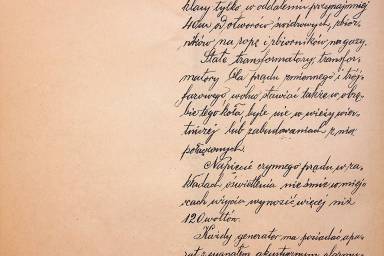 klary tylko w oddaleniu przynajmniej
40 m od otworów świdrowych, zbior-
ników na ropę i zbiorników na gazy.
Stałe transformatory, transfor-
matory dla prądu zmiennego i trój-
fazowego wolno stawiać także w obrę-
bie tego koła, byle nie w wieży wier-
tniczej lub zabudowaniach z nią
połączonych.
Napięcie czynnego prądu w za-
kładach oświetlenia nie śmie w miejs-
cach użycia wynosić więcej niż
120 woltów.
Każdy generator ma posiadać apa-
rat z sygnałem akustycznym alarmu-